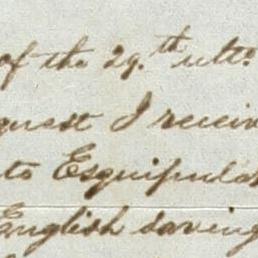 of the 29.th ulto.
quest I receiv
to Esquipula
English saving